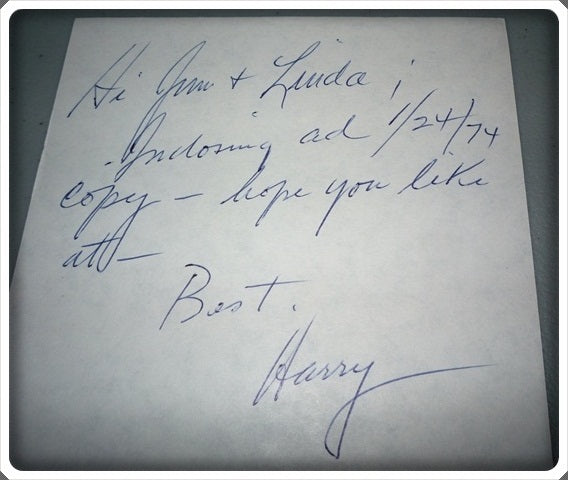 Hi Jim + Linda ;
Inclosing ad 1/24/74
copy - hope you like
att -
Best.
Harry